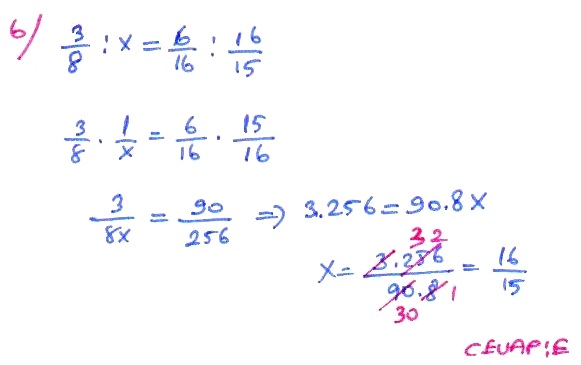 6) 3/8 : x = 6/16 : 16/15
3/8 . 1/x = 6/16 . 15/16
3/8x = 90/256 => 3.256 = 90.8x
32
x = 3.256/90.8 = 16/15
1
30
CEVAP:E